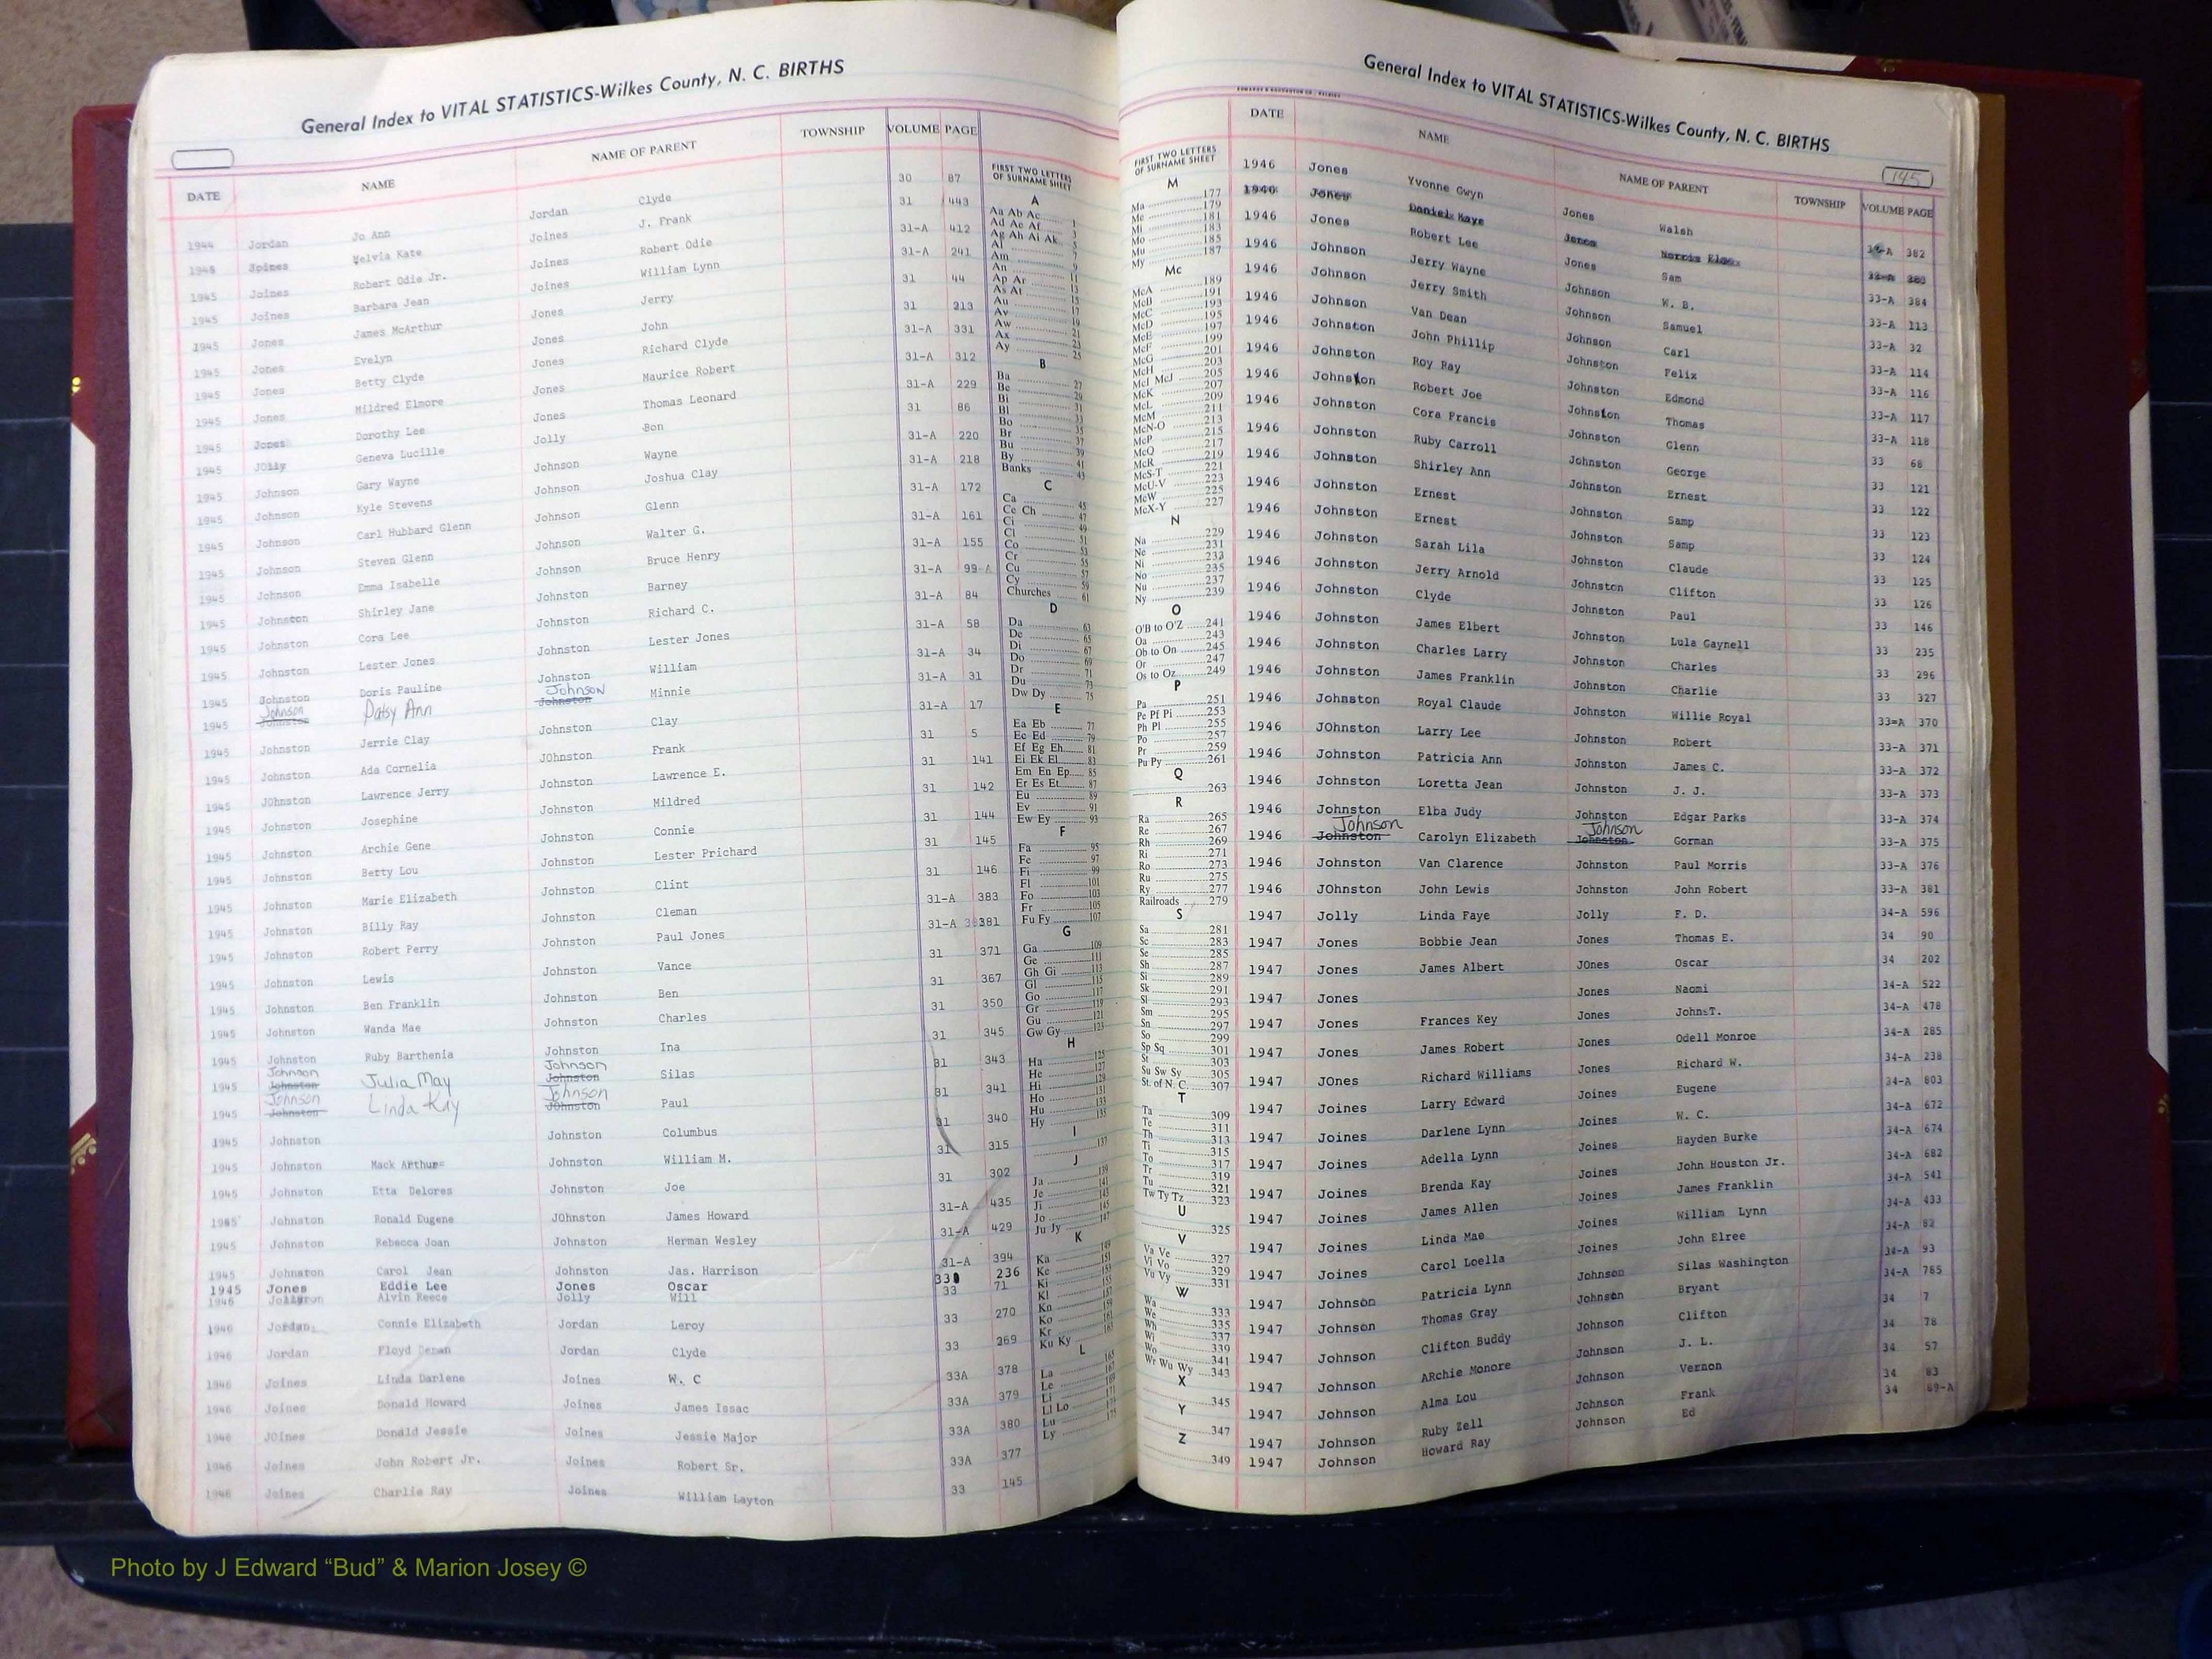 General Index to VITAL STATISTICS-Wilkes County, N. C. BIRTHS
DATE NAME NAME OF PARENT TOWNSHIP VOLUME PAGE
1944 Jordan Jo Ann Jordan Clyde 30 87
1945 Joines Melvia Kate Joines J. Frank 31 443
1945 Joines Robert Odie Jr. Joines Robert Odie 31-A 412
1945 Joines Barbara Jean Joines William Lynn 31-A 241
1945 Jones James McArthur Jones Jerry 31 44
1945 Jones Evelyn Jones John 31 213
1945 Jones Betty Clyde Jones Richard Clyde 31-A 331
1945 Jones Mildred Elmore Jones Maurice Robert 31-A 312
1945 Jones Dorothy Lee Jones Thomas Leonard 31-A 229
1945 JOlly Geneva Lucille Jolly Bon 31 86
1945 Johnson Gary Wayne Johnson Wayne 31-A 220
1945 Johnson Kyle Stevens Johnson Joshua Clay 31-A 218
1945 Johnson Carl Hubbard Glenn Johnson Glenn 31-A 172
1945 Johnson Steven Glenn Johnson Walter G. 31-A 161
1945 Johnson Emma Isabelle Johnson Bruce Henry 31-A 155
1945 Johnston Shirley Jane Johnston Barney 31-A 99-A
1945 Johnston Cora Lee Johnston Richard C. 31-A 84
1945 Johnston Lester Jones Johnston Lester Jones 31-A 58
1945 Johnston Doris Pauline Johnston William 31-A 34
Johnson Johnson
1945 Johnston Patsy Ann Johnston Minnie 31-A 31
1945 Johnston Jerrie Clay Johnston Clay 31-A 17
1945 Johnston Ada Cornelia JOhnston Frank 31 5
1945 JOhnston Lawrence Jerry Johnston Lawrence E. 31 141
1945 Johnston Josephine Johnston Mildred 31 142
1945 Johnston Archie Gene Johnston Connie 31 144
1945 Johnston Betty Lou Johnston Lester Prichard 31 145
1945 Johnston Marie Elizabeth Johnston Clint 31 146
1945 Johnston Billy Ray Johnston Cleman 31-A 383
1945 Johnston Robert Perry Johnston Paul Jones 31-A 381
1945 Johnston Lewis Johnston Vance 31 371
1945 Johnston Ben Franklin Johnston Ben 31 367
1945 Johnston Wanda Mae Johnston Charles 31 350
1945 Johnston Ruby Barthenia Johnston Ina 31 345
Johnson Johnson
1945 Johnston Julia May Johnston Silas 31 343
Johnson Johnson
1945 Johnston Linda Kay JOhnston Paul 31 341
1945 Johnston Johnston Columbus 31 340
1945 Johnston Mack Arthur Johnston William M. 31 315
1945 Johnston Etta Delores Johnston Joe 31 302
1945 Johnston Ronald Eugene JOhnston James Howard 31-A 435
1945 Johnston Rebecca Joan Johnston Herman Wesley 31-A 429
1945 Johnston Carol Jean Johnston Jas. Harrison 31-A 394
1945 Jones Eddie Lee Jones Oscar 33 236
1946 Alvin Reece Jolly Will 33 71
1946 Jordan Connie Elizabeth Jordan Leroy 33 270
1946 Jordan Floyd Deman Jordan Clyde 33 269
1946 Joines Linda Darlene Joines W. C 33A 378
1946 Joines Donald Howard Joines James Issac 33A 379
1946 JOines Donald Jessie Joines Jessie Major 33A 380
1946 Joines John Robert Jr. Joines Robert Sr. 33A 377
1946 Joines Charlie Ray Joines William Layton 33 145
FIRST TWO LETTERS
OF SURNAME SHEET
A
Aa Ab Ac 1
Ad Ae Af 3
Ag Ah Ai Ak 5
Al 7
Am 9
An 11
Ap Ar 13
As At 15
Au 17
Av 19
Aw 21
Ax 23
Ay 25
B
Ba 27
Be 29
Bi 31
Bl 33
Bo 35
Br 37
Bu 39
By 41
Banks 43
C
Ca 45
Ce Ch 47
Ci 49
Cl 51
Co 53
Cr 55
Cu 57
Cy 59
Churches 61
D
Da 63
De 65
Di 67
Do 69
Dr 71
Du 73
Dw Dy 75
E
Ea Eb 77
Ec Ed 79
Ef Eg Eh 81
Ei Ek El 83
Em En Ep 85
Er Es Et 87
Eu 89
Ev 91
Ew Ey 93
F
Fa 95
Fe 97
Fi 99
Fl 101
Fo 103
Fr 105
Fu Fy 107
G
Ga 109
Ge 111
Gh Gi 113
Gl 115
Go 117
Gr 119
Gu 121
Gw Gy 123
H
Ha 125
He 127
Hi 129
Ho 131
Hu 133
Hy 135
I
137
J
Ja 139
Je 141
Ji 143
Jo 145
Ju Jy 147
K
Ka 149
Ke 151
Ki 153
Kl 155
Kn 157
Ko 159
Kr 161
Ku Ky 163
L
La 165
Le 167
Li 169
Ll Lo 171
Lu 173
Ly 175
General Index to VITAL STATISTICS-Wilkes County, N. C. BIRTHS
145
FIRST TWO LETTERS
OF SURNAME SHEET
M
Ma 177
Me 179
Mi 181
Mo 183
Mu 185
My 187
Mc
McA 189
McB 191
McC 193
McD 195
McE 197
McF 199
McG 201
McH 203
McI McJ 205
McK 207
McL 209
McM 211
McN-O 213
McP 215
McQ 217
McR 219
McS-T 221
McU-V 223
McW 225
McX-Y 227
N
Na 229
Ne 231
Ni 233
No 235
Nu 237
Ny 239
O
O'B to O'Z 241
Oa 243
Ob to On 245
Or 247
Os to Oz 249
P
Pa 251
Pe Pf Pi 253
Ph Pl 255
Po 257
Pr 259
Pu Py 261
Q
263
R
Ra 265
Re 267
Rh 269
Ri 271
Ro 273
Ru 275
Ry 277
Railroads 279
S
Sa 281
Sc 283
Se 285
Sh 287
Si 289
Sk 291
Sl 293
Sm 295
Sn 297
So 299
Sp Sq 301
St 303
Su Sw Sy 305
St. of N. C. 307
T
Ta 309
Te 311
Th 313
Ti 315
To 317
Tr 319
Tu 321
Tw Ty Tz 323
U
325
V
Va Ve 327
Vi Vo 329
Vu Vy 331
W
Wa 333
We 335
Wh 337
Wi 339
Wo 341
Wr Wu Wy 343
X
345
Y
347
Z
349
DATE NAME NAME OF PARENT TOWNSHIP VOLUME PAGE
1946 Jones Yvonne Gwyn Jones Walsh 33-A 382
1946 Jones Daniel Kaye Jones 33-A 383
1946 Jones Robert Lee Jones Sam 33-A 384
1946 Johnson Jerry Wayne Johnson W. B. 33-A 113
1946 Johnson Jerry Smith Johnson Samuel 33-A 32
1946 Johnson Van Dean Johnson Carl 33-A 114
1946 Johnston John Phillip Johnston Felix 33-A 116
1946 Johnston Roy Ray Johnston Edmond 33-A 117
1946 Johnston Robert Joe Johnston Thomas 33-A 118
1946 Johnston Cora Francis Johnston Glenn 33 68
1946 Johnston Ruby Carroll Johnston George 33 121
1946 Johnston Shirley Ann Johnston Ernest 33 122
1946 Johnston Ernest Johnston Samp 33 123
1946 Johnston Ernest Johnston Samp 33 124
1946 Johnston Sarah Lila Johnston Claude 33 125
1946 Johnston Jerry Arnold Johnston Clifton 33 126
1946 Johnston Clyde Johnston Paul 33 146
1946 Johnston James Elbert Johnston Lula Gaynell 33 235
1946 Johnston Charles Larry Johnston Charles 33 296
1946 Johnston James Franklin Johnston Charlie 33 327
1946 Johnston Royal Claude Johnston Willie Royal 33=A 370
1946 JOhnston Larry Lee Johnston Robert 33-A 371
1946 Johnston Patricia Ann Johnston James C. 33-A 372
1946 Johnston Loretta Jean Johnston J. J. 33-A 373
1946 Johnston Elba Judy Johnston Edgar Parks 33-A 374
Johnson Johnson
1946 Johnston Carolyn Elizabeth Johnston Gorman 33-A 375
1946 Johnston Van Clarence Johnston Paul Morris 33-A 376
1946 JOhnston John Lewis Johnston John Robert 33-A 381
1947 Jolly Linda Faye Jolly F. D. 34-A 596
1947 Jones Bobbie Jean Jones Thomas E. 34 90
1947 Jones James Albert JOnes Oscar 34 202
1947 Jones Jones Naomi 34-A 522
1947 Jones Frances Key Jones JohnsT. 34-A 478
1947 Jones James Robert Jones Odell Monroe 34-A 285
1947 JOnes Richard Williams Jones Richard W. 34-A 238
1947 Joines Larry Edward Joines Eugene 34-A 803
1947 Joines Darlene Lynn Joines W. C. 34-A 672
1947 Joines Adella Lynn Joines Hayden Burke 34-A 674
1947 Joines Brenda Kay Joines John Houston Jr. 34-A 682
1947 Joines James Allen Joines James Franklin 34-A 541
1947 Joines Linda Mae Joines William Lynn 34-A 433
1947 Joines Carol Loella Joines John Elree 34-A 82
1947 Johnson Patricia Lynn Johnson Silas Washington 34-A 93
1947 Johnson Thomas Gray Johnson Bryant 34-A 785
1947 Johnson Clifton Buddy Johnson Clifton 34 7
1947 Johnson ARchie Monore Johnson J. L. 34 78
1947 Johnson Alma Lou Johnson Vernon 34 57
1947 Johnson Ruby Zell Johnson Frank 34 83
1947 Johnson Howard Ray Johnson Ed 34 89-A
Photo by J Edward “Bud” & Marion Josey ©